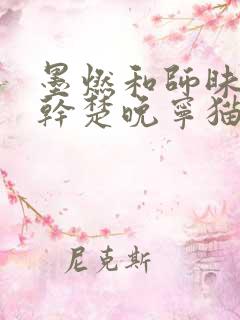 墨燃和師昧
幹楚晚寧猫
尼克斯